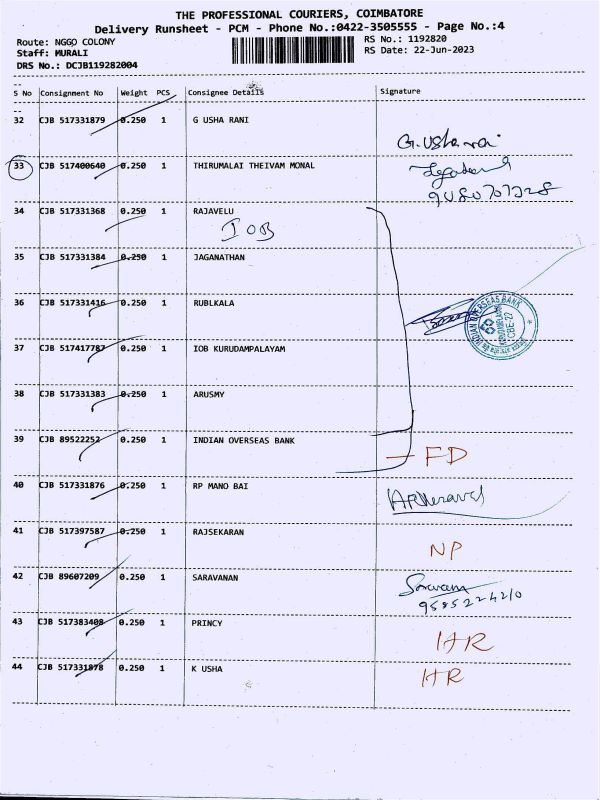 THE PROFESSIONAL COURIERS, COIMBATORE
Delivery Runsheet - PCM - Phone No.:0422-3505555 - Page No.:4
Route: NGGO COLONY
RS No.: 1192820
Staff: MURALI
RS Date: 22-Jun-2023
DRS No.: DCJB119282004
S No Consignment No Weight PCS Consignee Details Signature
32 CJB 517331879 0.250 1 G USHA RANI
G. Usha rani
33 CJB 517400640 0.250 1 THIRUMALAI THEIVAM MONAL
9080707328
34 CJB 517331368 0.250 1 RAJAVELU
IOB
35 CJB 517331384 0.250 1 JAGANATHAN
36 CJB 517331416 0.250 1 RUBLKALA
INDIAN OVERSEAS BANK
CBE-22
37 CJB 517417787 0.250 1 IOB KURUDAMPALAYAM
38 CJB 517331383 0.250 1 ARUSMY
39 CJB 89522252 0.250 1 INDIAN OVERSEAS BANK
- FD
40 CJB 517331876 0.250 1 RP MANO BAI
41 CJB 517397587 0.250 1 RAJSEKARAN
NP
42 CJB 89607209 0.250 1 SARAVANAN
9585224210
43 CJB 517383408 0.250 1 PRINCY
HR
44 CJB 517331878 0.250 1 K USHA
HR